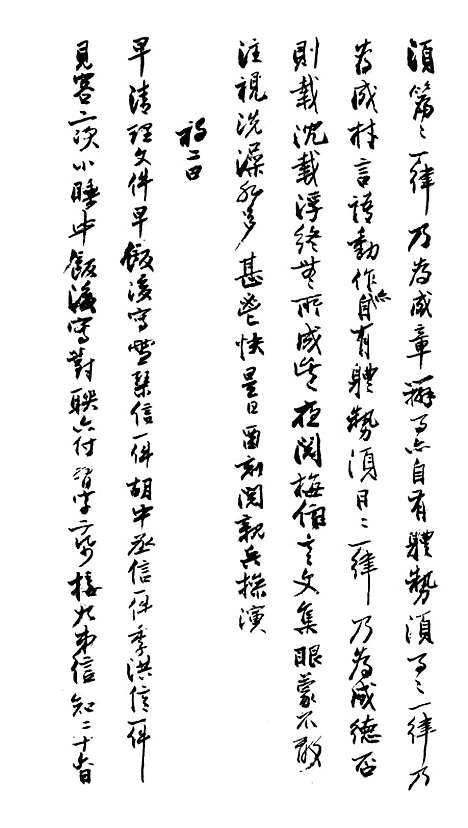 須篇篇一律乃為成章辦事亦自有體勢須事事一律乃
為成材言語動作亦自有體勢須日日一律乃為成德否
則載沈載浮終無所成矣夜閱梅伯言文集眼蒙不敢
注視洗澡後甚覺快是日酉刻閱親兵操演
初二日
早清理文件早飯後寫雪琴信一件胡中丞信一件季洪信一件
見客二次小睡中飯後寫對聯六付習字一紙接九弟信知二十六日